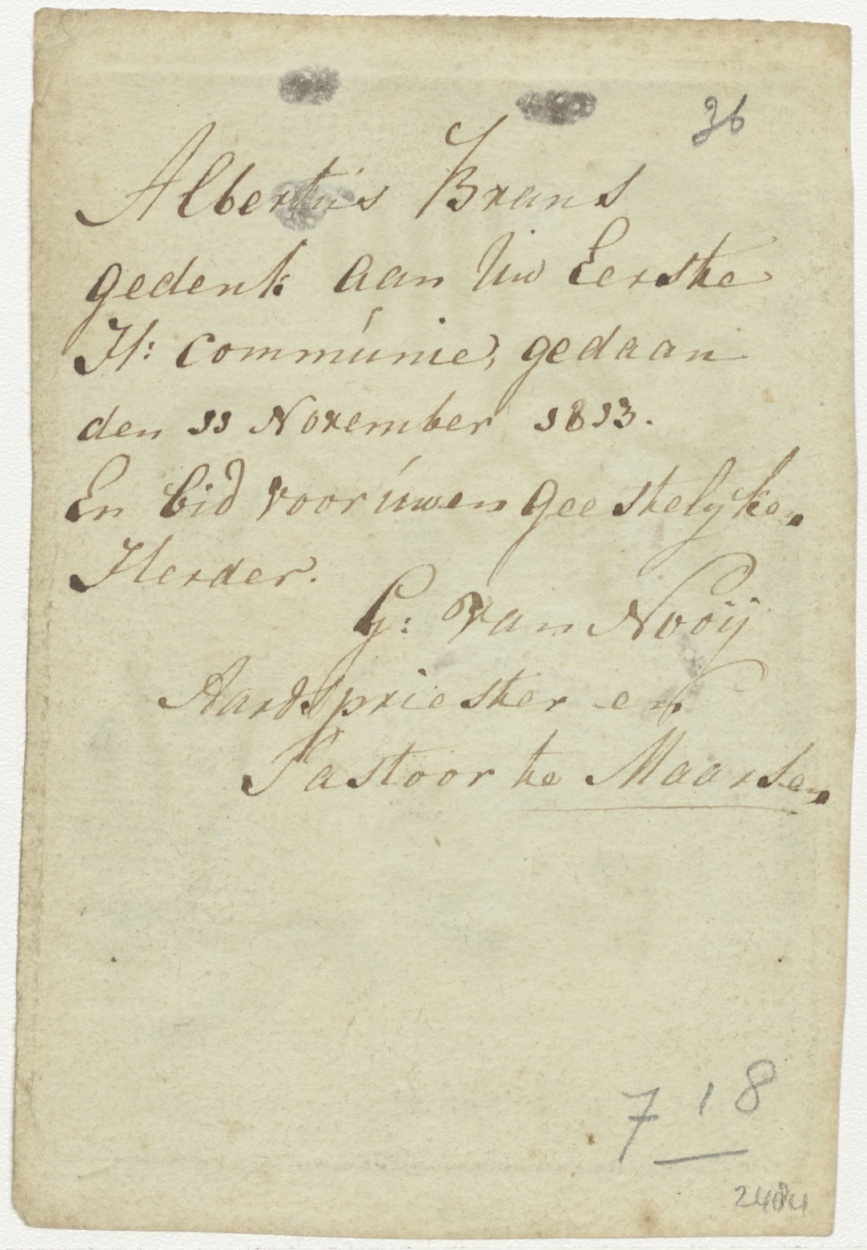 36
Albertus Brans
gedenk aan Uw Eerste
H: Communie, gedaan
den 11 November 1813.
En bid voor úwen geestelyken
Herder.
G: van Nooij
Aardspriester en
Pastoor te Maarsen
7 1 8
2484